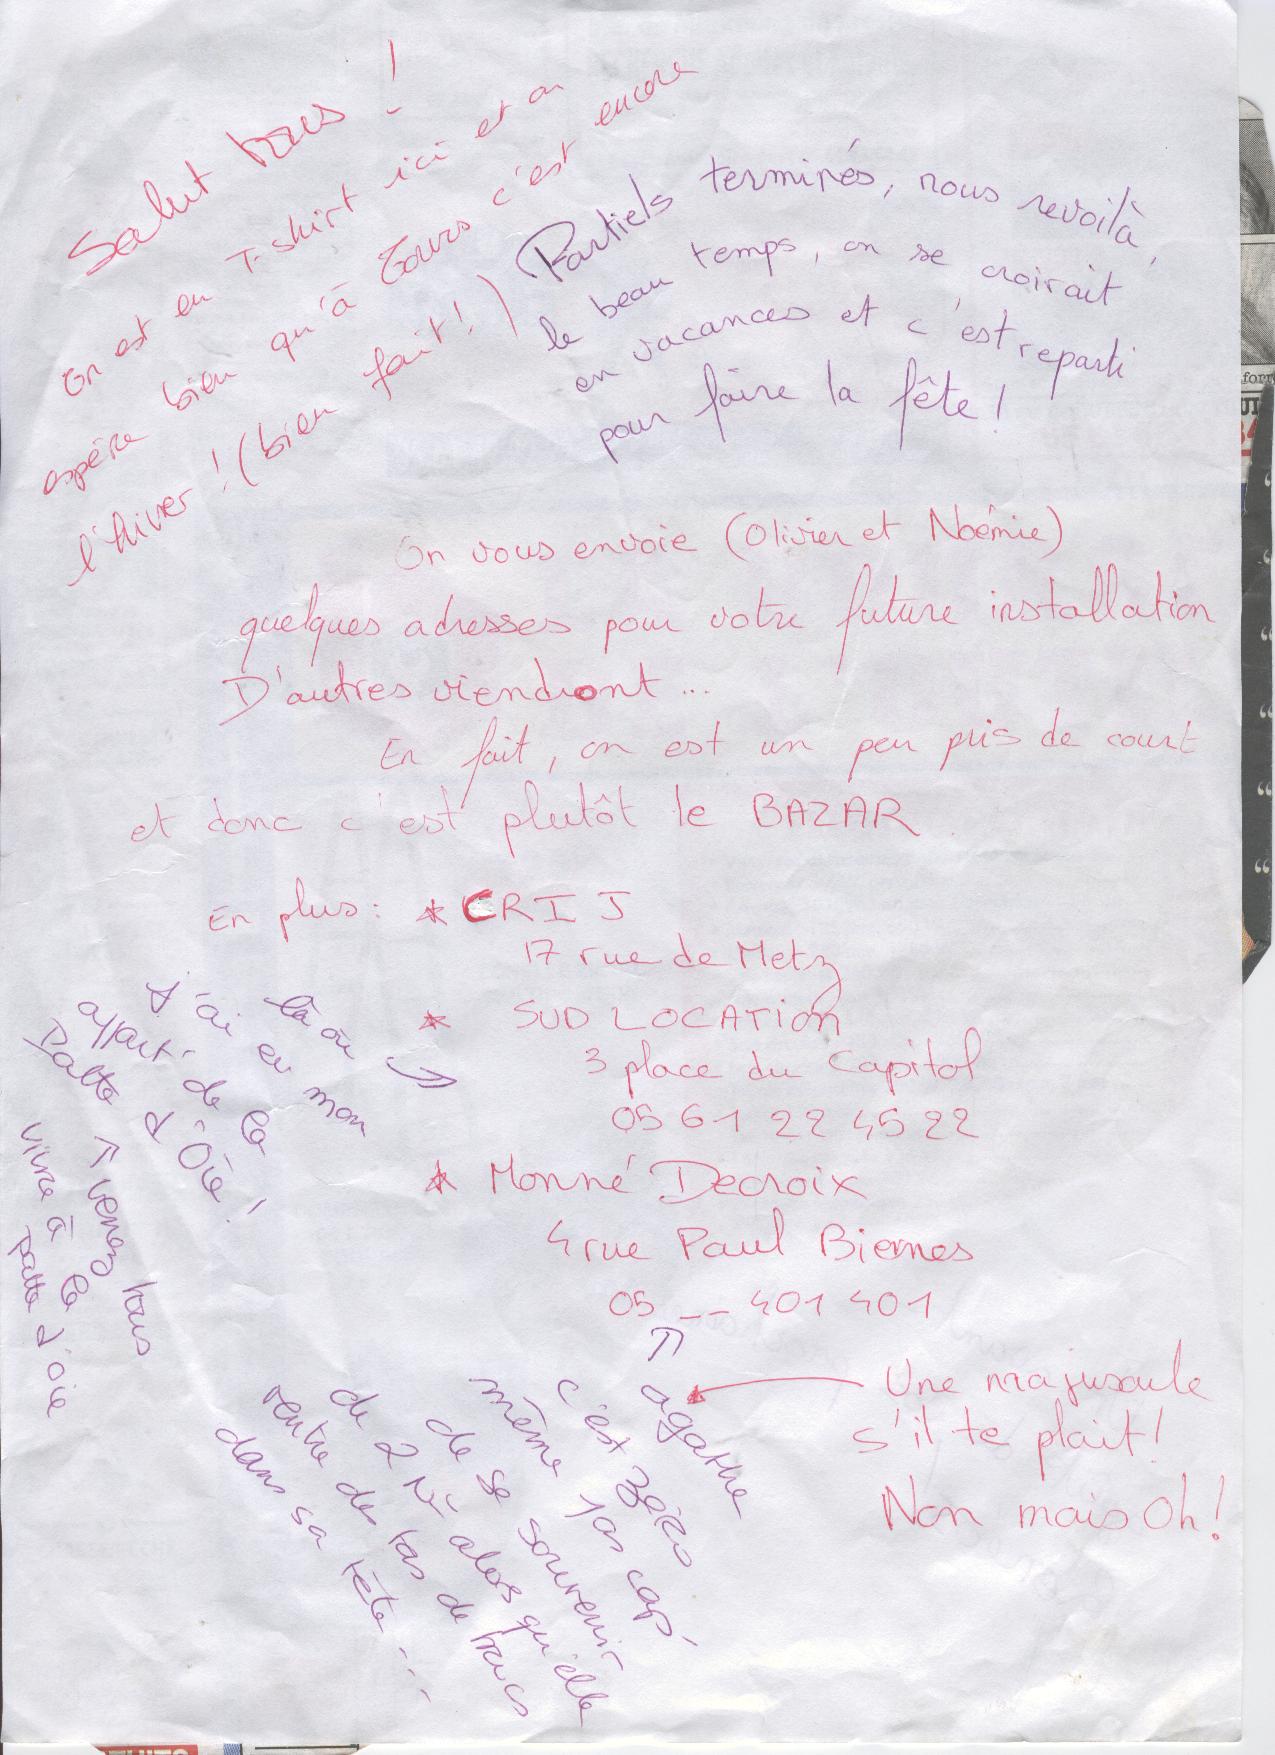 Salut tous !
On est en T-shirt ici et on
espère bien qu'à Tours c'est encore
l'hiver ! (bien fait ! )
Partiels terminés, nous revoilà,
le beau temps, on se croirait
en vacances et c'est reparti
pour faire la fête !
On vous envoie (Olivier et Noémie)
quelques adresses pour votre future installation
D'autres viendront ...
En fait, on est un peu pris de court
et donc c'est plutôt le BAZAR.
En plus : * CRIJ
17 rue de Metz
* SUD LOCATION
3 place du Capitol
05 61 22 45 22
là où →
j'ai eu mon
appart' de la
Patte d'Oie !
↑ venez tous
vivre à la
patte d'oie
* Monné Decroix
4 rue Paul Biernes
05 _ _ 401 401
↑ agathe
c'est zéro
même pas cap'
de se souvenir
de 2 N° alors qu'elle
rentre des tas de trucs
dans sa tête ...
Une majuscule
s'il te plait !
Non mais Oh !